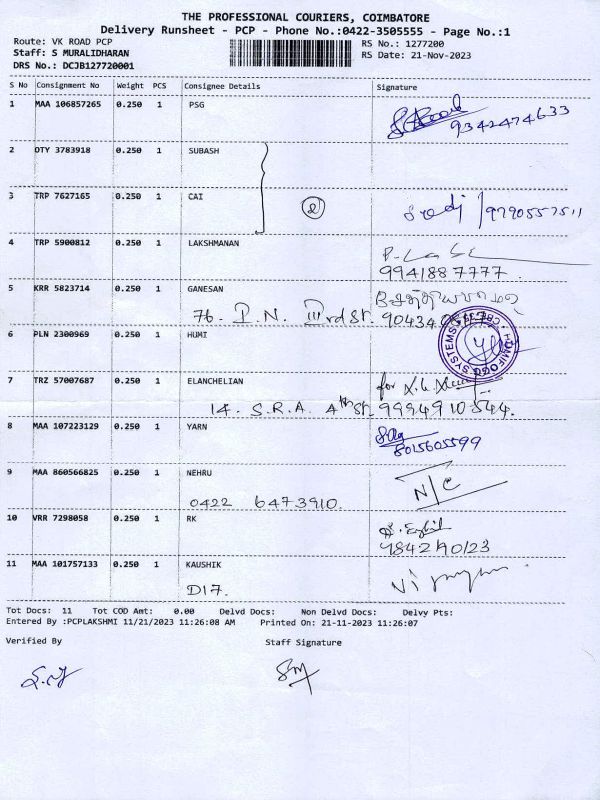 THE PROFESSIONAL COURIERS, COIMBATORE
Delivery Runsheet - PCP - Phone No.:0422-3505555 - Page No.:1
Route: VK ROAD PCP
RS No.: 1277200
Staff: S MURALIDHARAN
RS Date: 21-Nov-2023
DRS No.: DCJB127720001
S No Consignment No Weight PCS Consignee Details Signature
1 MAA 106857265 0.250 1 PSG
9342474633
2 DTY 3783918 0.250 1 SUBASH
3 TRP 7627165 0.250 1 CAI
2
9790557511
4 TRP 5900812 0.250 1 LAKSHMANAN
9941887777.
5 KRR 5823714 0.250 1 GANESAN
76. P.N. IIIrd St.
6 PLN 2300969 0.250 1 HUMI
SYSTEMS
7 TRZ 57007687 0.250 1 ELANCHELIAN
for
14. S.R.A. 4th St. 9994910544.
8 MAA 107223129 0.250 1 YARN
8015605599
9 MAA 860566825 0.250 1 NEHRU
N/C
0422 6473910.
10 VRR 7298058 0.250 1 RK
11 MAA 101757133 0.250 1 KAUSHIK
D17.
Tot Docs: 11 Tot COD Amt: 0.00 Delvd Docs: Non Delvd Docs: Delvy Pts:
Entered By :PCPLAKSHMI 11/21/2023 11:26:08 AM Printed On: 21-11-2023 11:26:07
Verified By Staff Signature